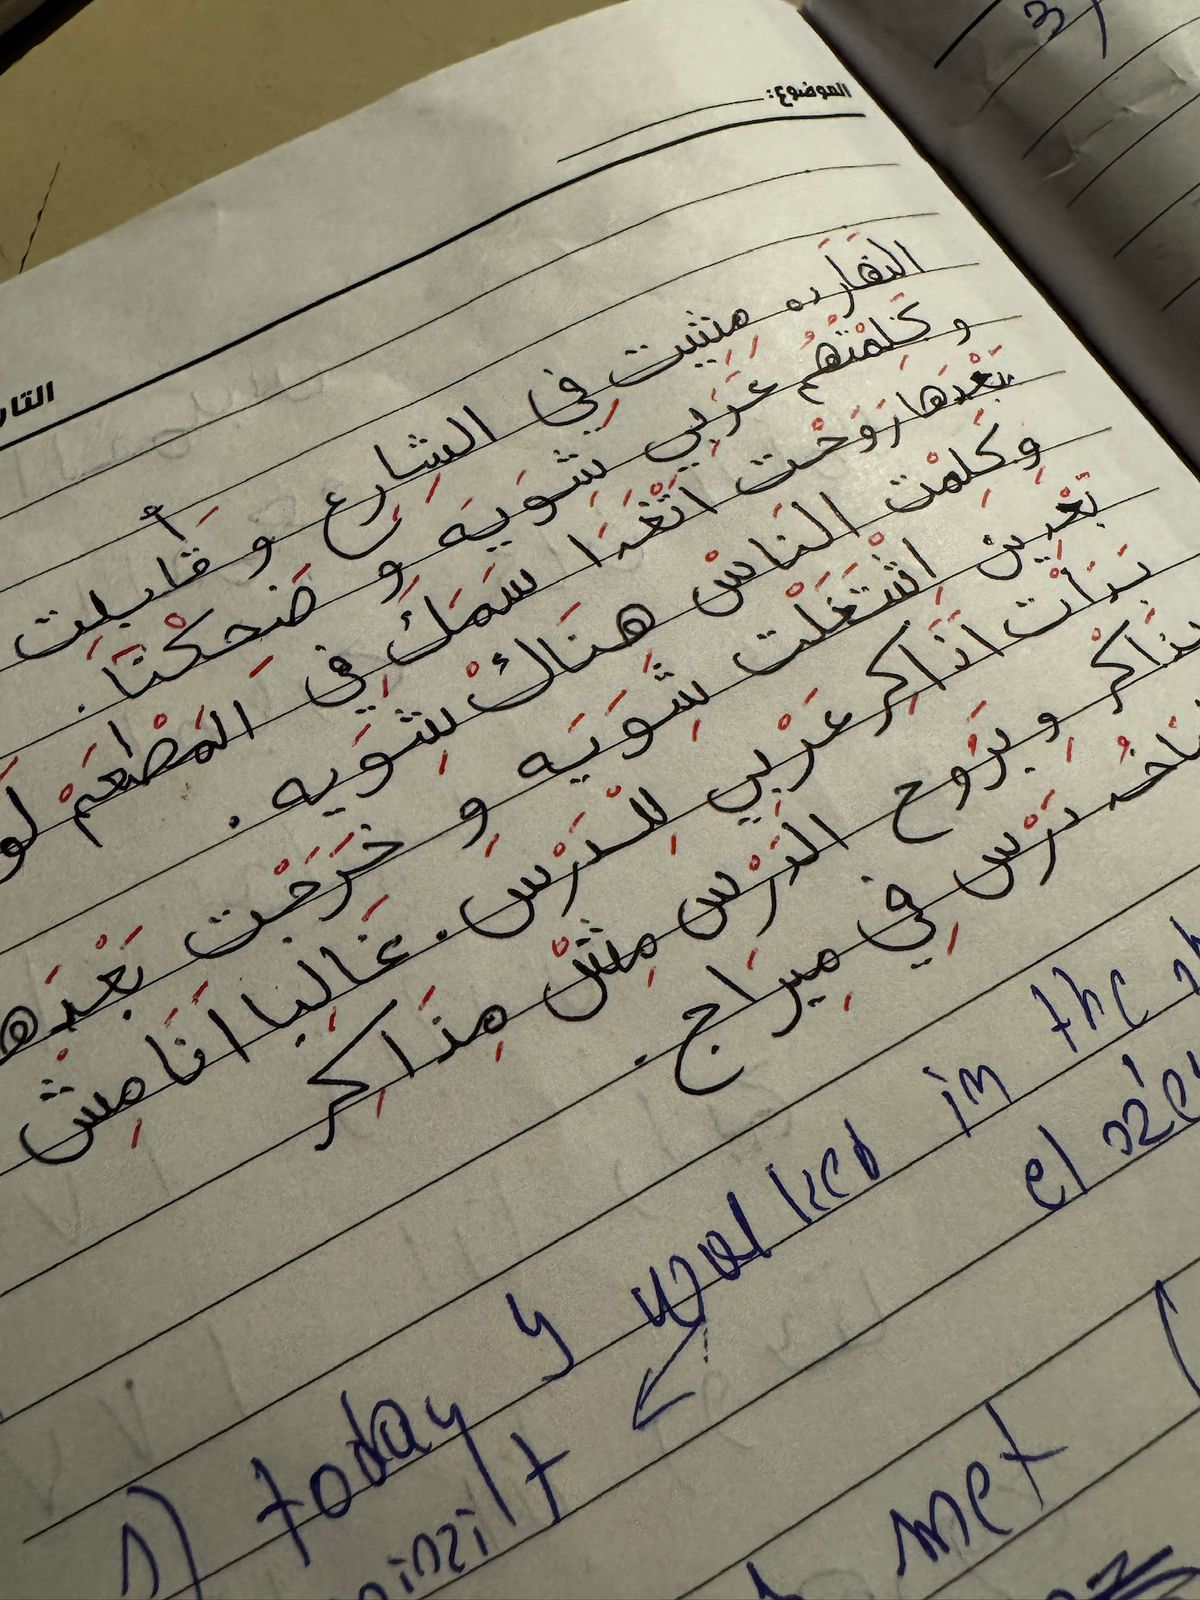 الموضوع:
التار
النهارده مِشِيت فِي الشارِع و قَابِلت أ
و كَلِمْتُهُم عَرَبِي شْوَيَه و ضَحِكْنَا.
بَعْدَهَا رَوَحْت اتْغَدَا سَمَك فِي المَطْعَمْ لَو
وِكَلِمْت النَاسْ هِنَاكْ شِوَيَه.
بَعْدِين اِشْتَغَلْت شِوَيَه وِ خَرَجْت بَعْدَه
بَدَأْت اذَاكِر عَرَبِي لِلدَرْس. غَالِبا انَا مِشْ
ذَاكِرْ وِ بَرُوح الدَرْس مِشْ مِذَاكِر
دَرْس فِي مِيرَاج.
1) today y walked in the
mizilt
el
met
3)